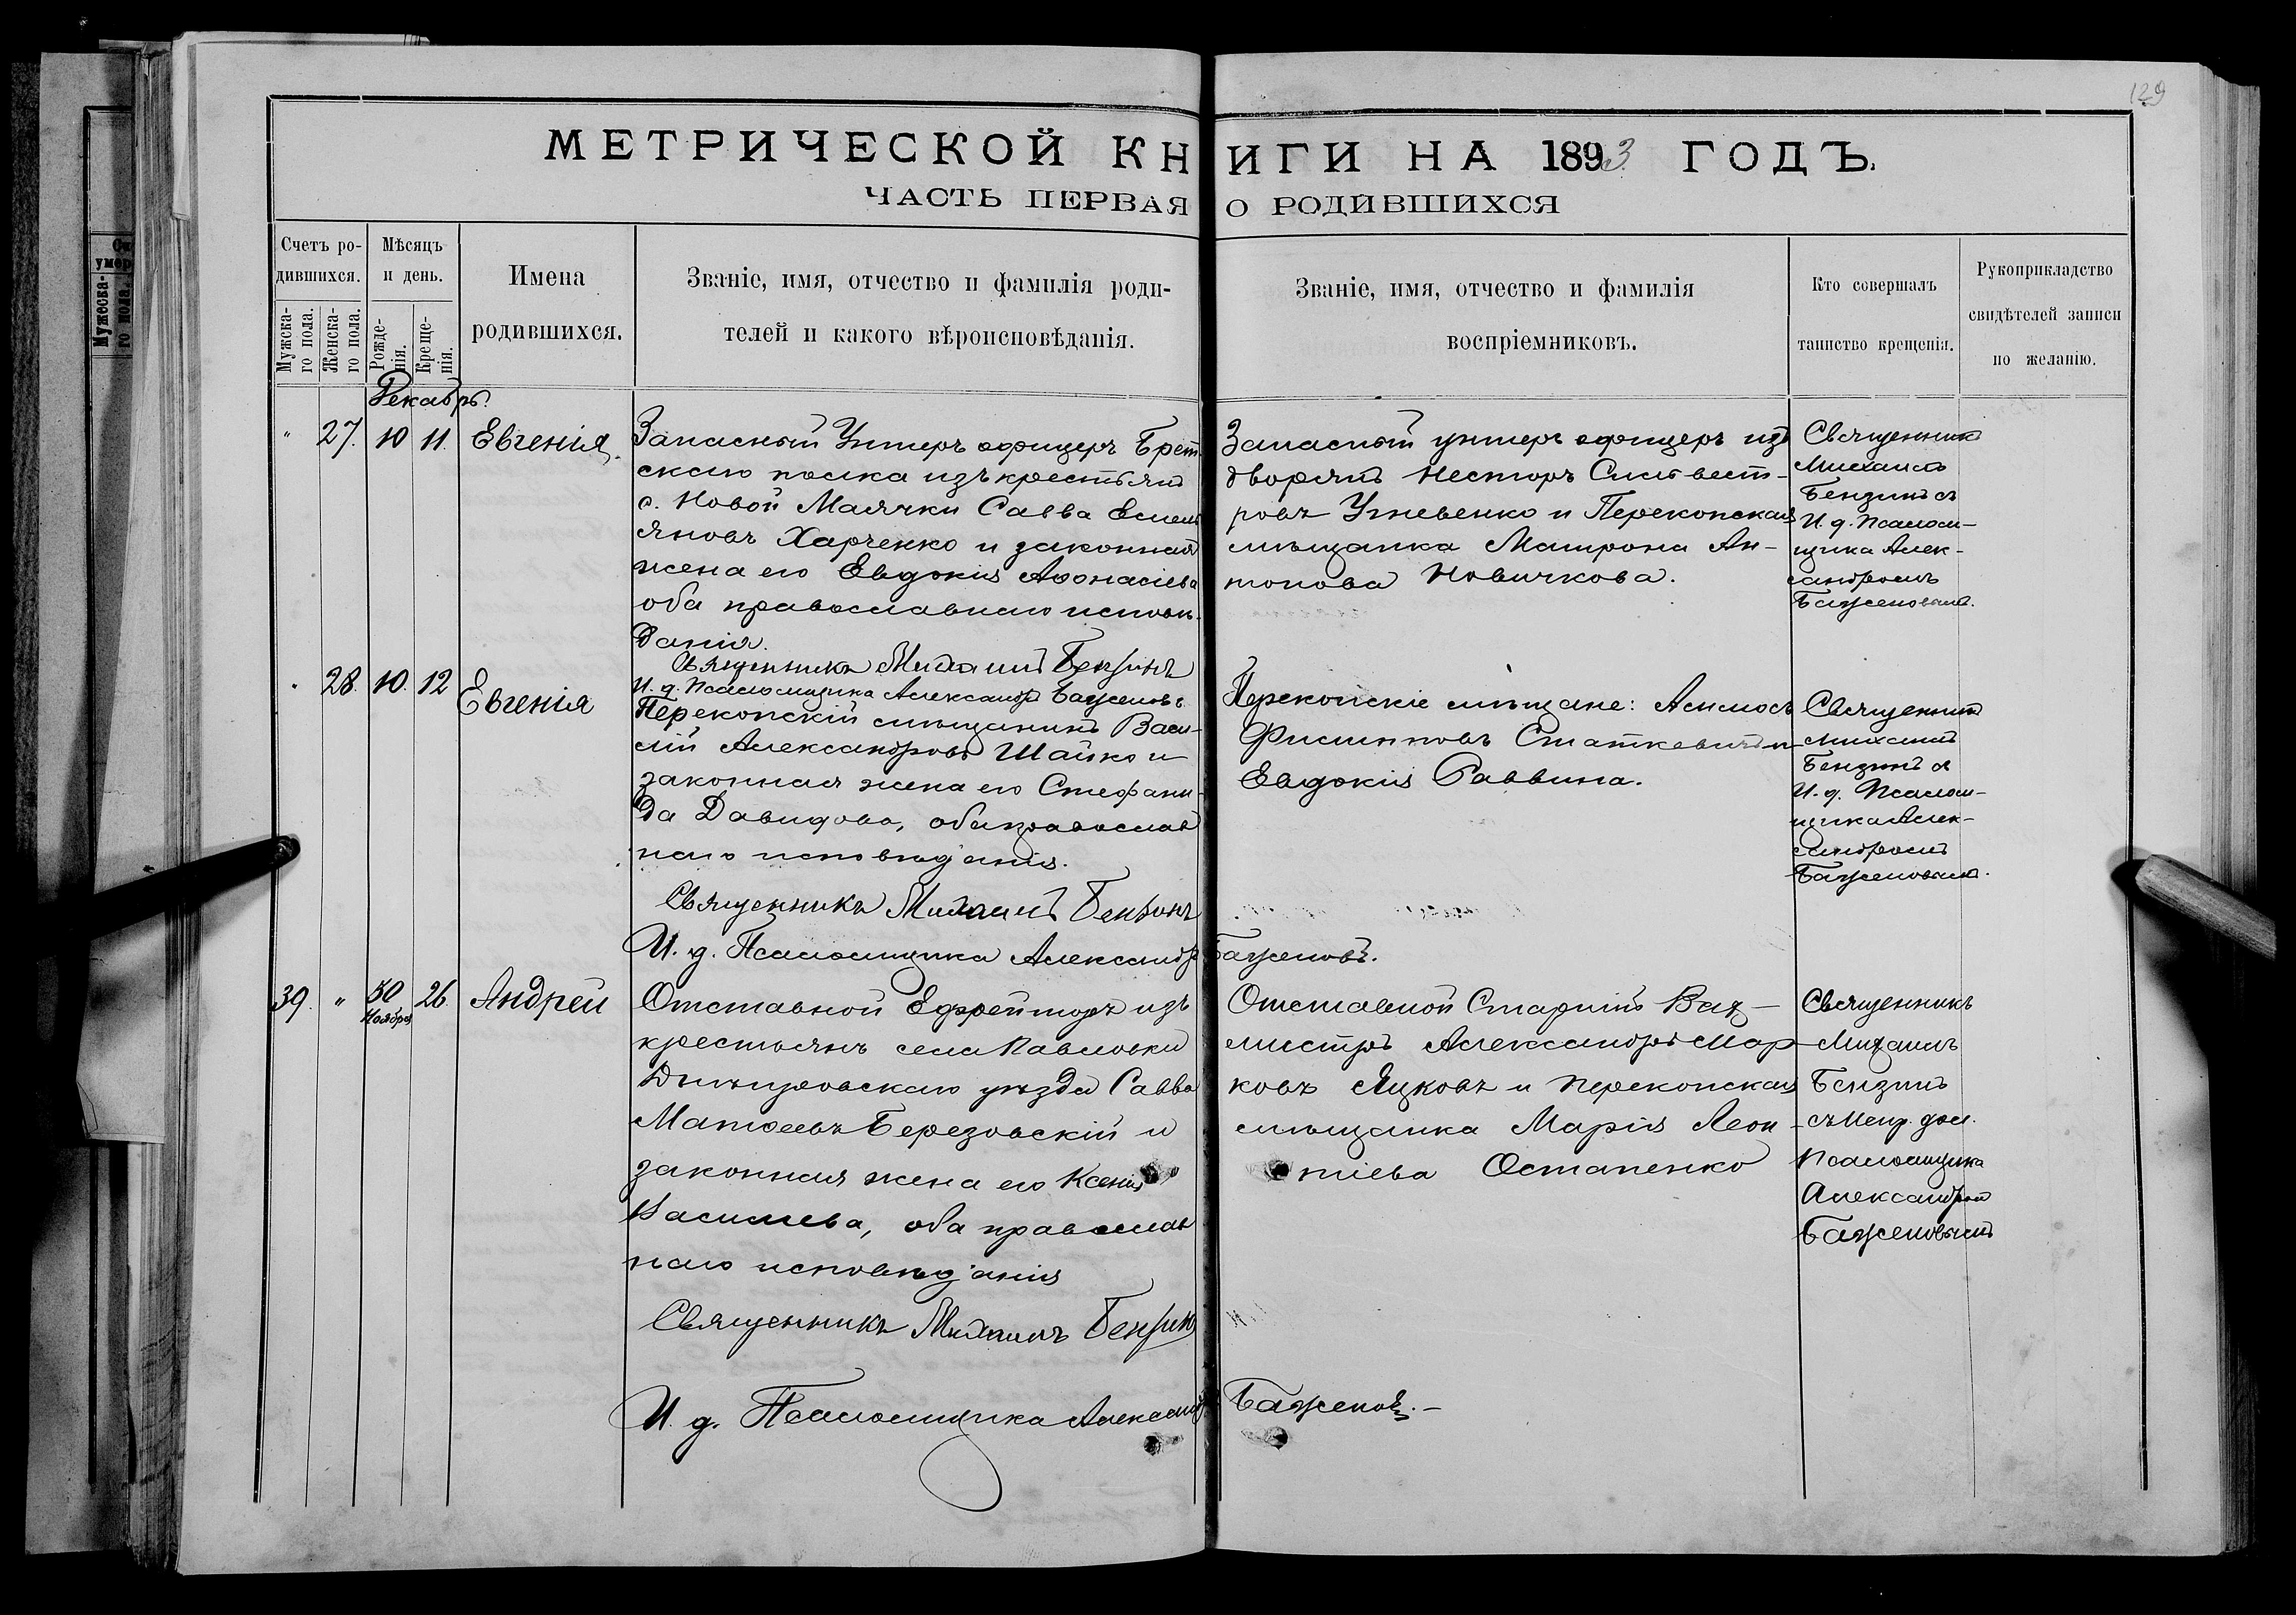 129
МЕТРИЧЕСКОЙ КНИГИ НА 1893 ГОДЪ.
ЧАСТЬ ПЕРВАЯ О РОДИВШИХСЯ
Счетъ ро-
дившихся.
Мужска-
го пола.
Женска-
го пола.
Мѣсяцъ
и день.
Рожде-
нія.
Креще-
нія.
Имена
родившихся.
Званіе, имя, отчество и фамилія роди-
телей и какого вѣроисповѣданія.
Званіе, имя, отчество и фамилія
воспріемниковъ.
Кто совершалъ
таинство крещенія.
Рукоприкладство
свидѣтелей записи
по желанію.
Декабрь.
" 27. 10 11. Евгенія.
Запасный Унтеръ офицеръ Брест
скаго полка изъ крестьянъ
с. Новой Маячки Савва Емель
яновъ Харченко и законная
жена его Евдокія Аѳонасіева
оба православнаго исповѣ-
данія.
Священникъ Михаилъ Бензинъ
И. д. Псаломщика Александръ Баженовъ
Запасный унтеръ офицеръ изъ
дворянъ Несторъ Сильвест-
ровъ и Перекопская
мѣщанка Матрона Ан-
тонова Новичкова.
Священникъ
Михаилъ
Бензинъ съ
И. д. Псалом-
щика Алек-
сандромъ
Баженовымъ.
" 28. 10. 12 Евгенія
Перекопскій мѣщанинъ Васи-
лій Александровъ Шайко и
законная жена его Стефани-
да Давидова, оба православ
наго исповѣданія.
Священникъ Михаилъ Бензинъ
И. д. Псаломщика Александръ Баженовъ.
Перекопскіе мѣщане:
Филипповъ Статкевичъ и
Евдокія Саввина.
Священникъ
Михаилъ
Бензинъ съ
И. д. Псалом-
щика Алек-
сандромъ
Баженовымъ.
39. " 30 Ноября 26 Андрей
Отставной Ефрейторъ изъ
крестьянъ села Павловки
Днѣпровскаго уѣзда Савва
Матѳеевъ Березовскій и
законная жена его Ксенія
Васильева, оба православ
наго исповѣданія
Священникъ Михаилъ Бензинъ
И. д. Псаломщика Александръ Баженовъ.-
Отставной Старшій Вах-
мистръ Александръ Мар-
ковъ Яцковъ и Перекопская
мѣщанка Марія Леон-
тіева Остапенко
Священникъ
Михаилъ
Бензинъ
съ Испр. дол.
Псаломщика
Александромъ
Баженовымъ